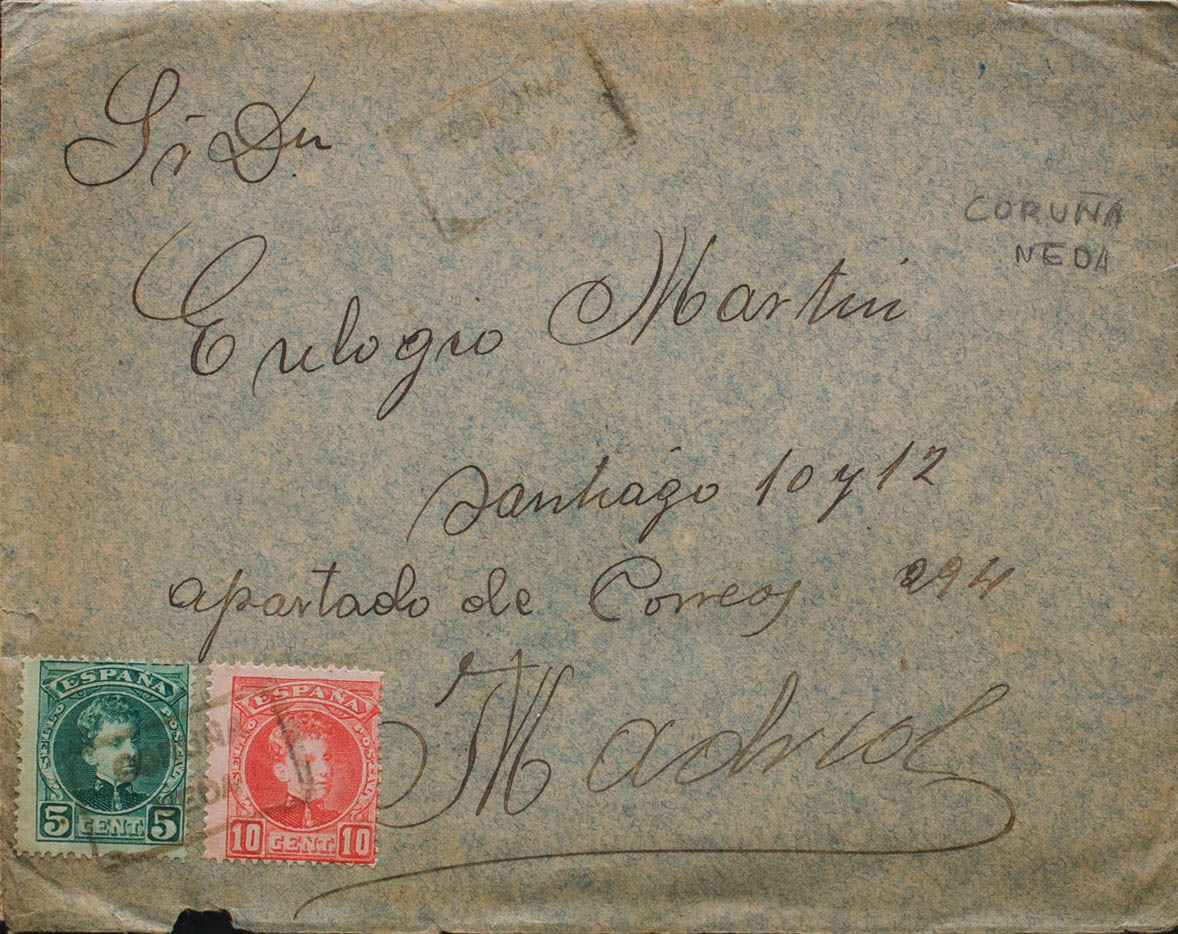 Sr Dn
CORUÑA
NEDA
Eulogio Martin
Santiago 10 y 12
apartado de Correos 294
Madrid
ESPAÑA
SELLO POSTAL
5 CENT. 5
ESPAÑA
SELLO POSTAL
10 CENT. 10